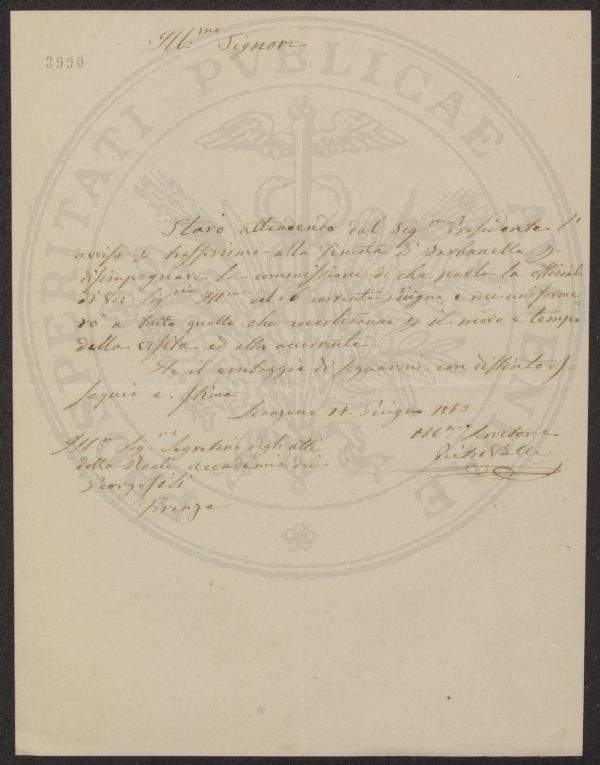 Ill.mo Signore
3990
PROSPERITATI PVBLICAE AVGENDAE
Starò attendendo dal Sig.r Presidente l'
avviso p trasferirmi alla Tenuta di Barbanella p
disimpegnare la commissione di che parla la officiale
di VS Sig.ria Ill.ma del corrente Giugno, e mi uniforme
rò a tutto quello che p il modo e tempo
della visita ed altro occorrente.
Ho il vantaggio di segnarmi con distinto os-
sequio e stima.
11 Giugno 1863
Obb.mo Servitore
Pietro Valle
Ill.mo Sig.re Segretario degli atti
della Reale Accademia dei
Georgofili
Firenze